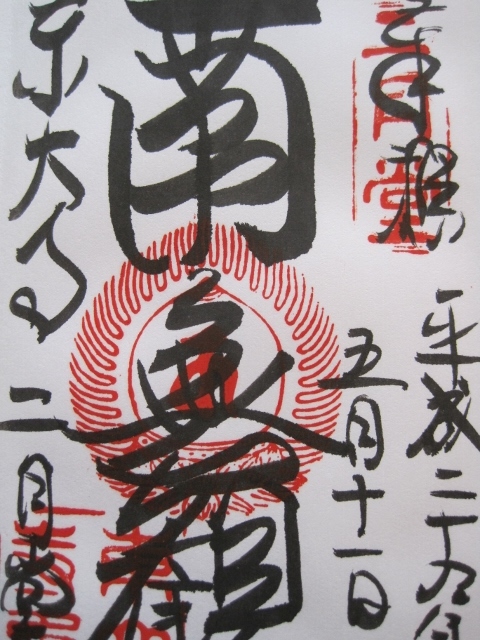 奉拝
二月堂
平成二十九年
五月十一日
南無観
東大寺
二月堂